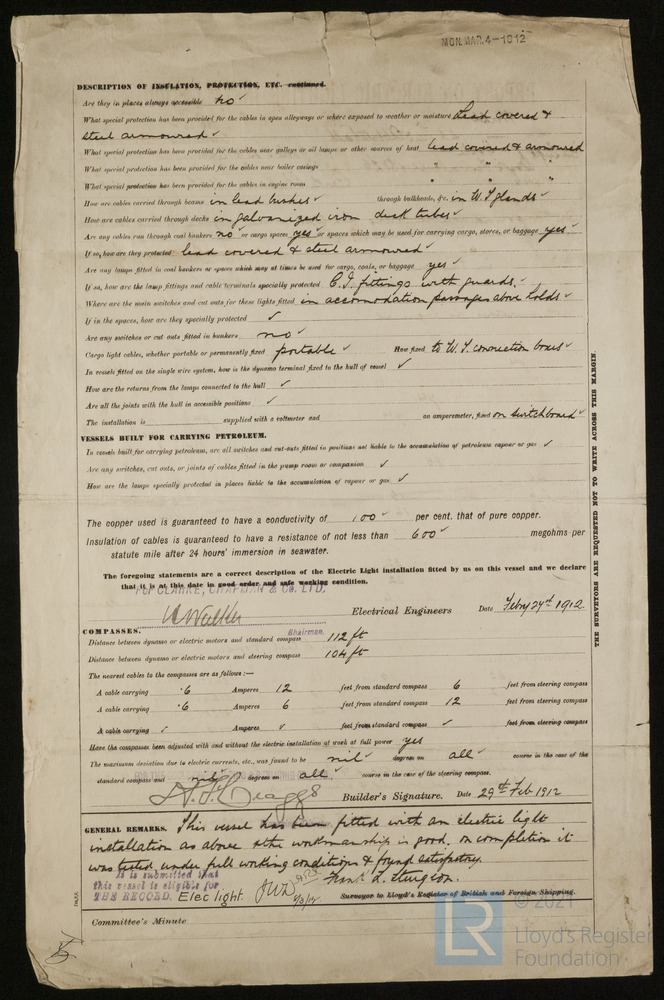 MON. MAR. 4-1912
DESCRIPTION OF INSULATION, PROTECTION, ETC. continued.
Are they in places always accessible no
What special protection has been provided for the cables in open alleyways or where exposed to weather or moisture Lead covered &
steel armoured
What special protection has been provided for the cables near galleys or oil lamps or other sources of heat lead covered & armoured
What special protection has been provided for the cables near boiler casings " " "
What special protection has been provided for the cables in engine room " " "
How are cables carried through beams in lead bushes through bulkheads, &c. in W.T glands
How are cables carried through decks in galvanized iron deck tubes
Are any cables run through coal bunkers no or cargo spaces yes or spaces which may be used for carrying cargo, stores, or baggage yes
If so, how are they protected lead covered & steel armoured
Are any lamps fitted in coal bunkers or spaces which may at times be used for cargo, coals, or baggage yes
If so, how are the lamp fittings and cable terminals specially protected C.I. fittings with guards.
Where are the main switches and cut outs for these lights fitted in accommodation passages above holds
If in the spaces, how are they specially protected ✓
Are any switches or cut outs fitted in bunkers no
Cargo light cables, whether portable or permanently fixed portable How fixed to W.T. connection boxes
In vessels fitted on the single wire system, how is the dynamo terminal fixed to the hull of vessel ✓
How are the returns from the lamps connected to the hull ✓
Are all the joints with the hull in accessible positions ✓
The installation is supplied with a voltmeter and an amperemeter, fixed on switchboard
VESSELS BUILT FOR CARRYING PETROLEUM.
In vessels built for carrying petroleum, are all switches and cut-outs fitted in positions not liable to the accumulation of petroleum vapour or gas ✓
Are any switches, cut outs, or joints of cables fitted in the pump room or companion ✓
How are the lamps specially protected in places liable to the accumulation of vapour or gas ✓
The copper used is guaranteed to have a conductivity of 100 per cent. that of pure copper.
Insulation of cables is guaranteed to have a resistance of not less than 600 megohms per
statute mile after 24 hours' immersion in seawater.
The foregoing statements are a correct description of the Electric Light installation fitted by us on this vessel and we declare
that it is at this date in good order and safe working condition.
For CLARKE, CHAPMAN & Co. LTD.
Walker Electrical Engineers Date Febry 27th 1912.
Chairman.
COMPASSES.
Distance between dynamo or electric motors and standard compass 112 ft
Distance between dynamo or electric motors and steering compass 104 ft
The nearest cables to the compasses are as follows:—
A cable carrying ·6 Amperes 12 feet from standard compass 6 feet from steering compass
A cable carrying ·6 Amperes 6 feet from standard compass 12 feet from steering compass
A cable carrying ✓ Amperes ✓ feet from standard compass ✓ feet from steering compass
Have the compasses been adjusted with and without the electric installation at work at full power yes
The maximum deviation due to electric currents, etc., was found to be nil degrees on all course in the case of the
standard compass and nil degrees on all course in the case of the steering compass.
Craggs Builder's Signature. Date 29th Feb 1912
GENERAL REMARKS. This vessel has been fitted with an electric light
installation as above & the workmanship is good, on completion it
was tested under full working conditions & found satisfactory.
It is submitted that
this vessel is eligible for
THE RECORD. Elec light. JWD 4/3/12 Frank L. Sturgeon.
Surveyor to Lloyd's Register of British and Foreign Shipping.
Committee's Minute
THE SURVEYORS ARE REQUESTED NOT TO WRITE ACROSS THIS MARGIN.
LR
© 2021
Lloyd's Register
Foundation